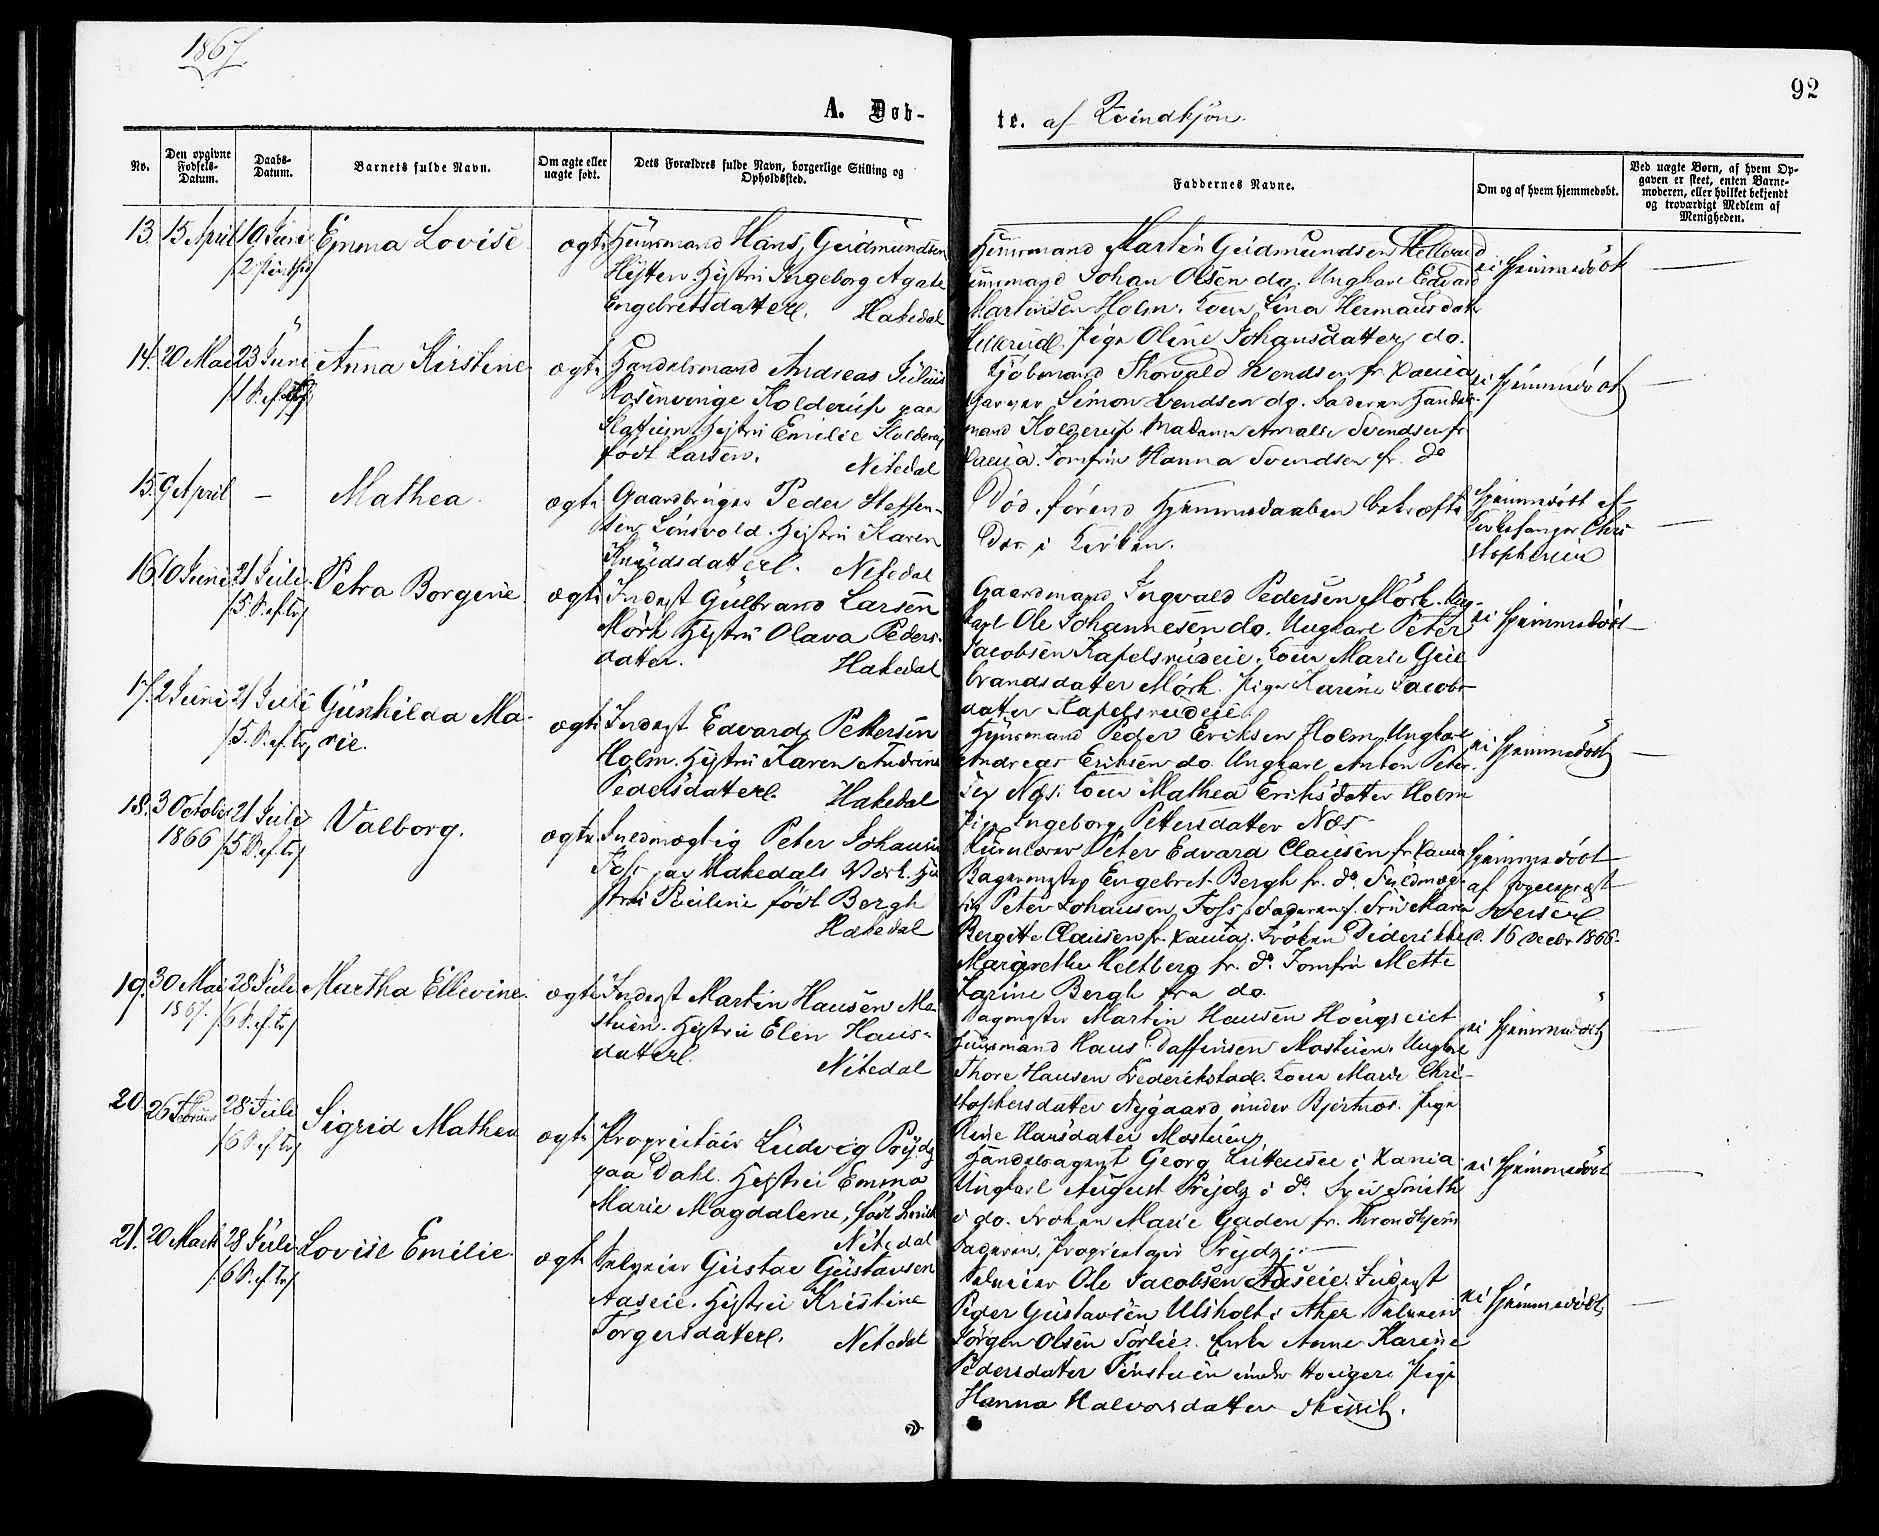 1867.
92
A. Døb-
te. af Kvindkjøn.
No.
Den opgivne
Fødsels-
Datum.
Daabs-
Datum.
Barnets fulde Navn.
Om ægte eller
uægte født.
Dets Forældres fulde Navn, borgerlige Stilling og
Opholdssted.
Faddernes Navne.
Om og af hvem hjemmedøbt.
Ved uægte Børn, af hvem Op-
gaven er skeet, enten Barne-
moderen, eller hvilket bekjendt
og troværdigt Medlem af
Menigheden.
13. 15 April 10 Juni Emma Lovise ægte Huusmand Hans Gudmundsen
Hytten. Hustru Ingeborg Agate
Engebretsdatter. Hakedal
Huusmand Martin Gudmundsen Hellerud
Huusmand Johan Olsen do. Ungkarl Edvard
Martinsen Holm. Kone Lina Hermansdatter
Hellerud. Pige Oline Johansdatter do.
ei hjemmedøbt
14. 20 Mai 23 Juni Anna Kirstine ægte Handelsmand Andreas Julius
Rosenvinge Kolderup paa
Slattum. Hustru Emilie Kolderup
født Larsen. Nitedal
Kjøbmand Thorvald Svendsen fr. Xania
Garver Simon Svendsen do. Faderen Handels-
mand Kolderup. Madame Amalie Svendsen fr.
Xania. Jomfru Hanna Svendsen fr. do
ei hjemmedøbt
15. 9 April — Mathea ægte Gaardbruger Peder Steffen-
sen Sønsvold. Hustru Karen
Knudsdatter. Nitedal
Død, førend Hjemmedaaben bekræfte-
des i Kirken.
hjemmedøbt af
Kirkesanger Chri-
stophersen
16. 10 Juni 21 Juli Petra Borgine ægte Inderst Gulbrand Larsen
5 S. ef. Tr.
Mørk Hustru Olava Peders-
datter. Hakedal
Gaardmand Ingvald Pedersen Mørk. Ung-
karl Ole Johannesen do. Ungkarl Peter
Jacobsen Kapelsrudeie. Kone Marie Gul-
brandsdatter Mørk. Pige Karine Jacobs-
datter Kapelsrudeie
ei hjemmedøbt
17. 2 Juni 21 Juli Gunhilda Ma-
5. S. ef. Tr. rie.
ægte Inderst Edvard Pettersen
Holm. Hustru Karen Andrine
Pedersdatter. Hakedal
Huusmand Peder Eriksen Holm. Ungkarl
Andreas Eriksen do. Ungkarl Anton Peter-
sen Næs. Kone Mathea Eriksdatter Holm
Pige Ingeborg Pettersdatter Næs
ei hjemmedøbt
18. 3 October 21 Juli Valborg. ægte Fuldmægtig Peter Johansen
1866 5 S. ef. Tr.
Foss paa Hakedals Værk. Hu-
stru Pauline født Bergh
Hakedal
Peter Edvard Clausen fr. Xania
Bagermester Engebret Bergh fr. do. Fuldmæg-
tig Peter Johansen Foss Faderen. Fru Maren
Bergitte Clausen fr. Xania. Frøken Diderikke
Margrethe Heltberg fr. do. Jomfru Mette
Karine Bergh fra do.
hjemmedøbt
af Sognepræst
Iversen
d. 16 Decbr 1866.
19. 30 Mai 28 Juli Martha Ellevine. ægte Inderst Martin Hansen Mo-
1867. 6 S. ef. Tr.
stuen. Hustru Elen Hans-
datter. Nitedal
Martin Hansen
Huusmand Hans Daffinsen Mostuen. Ungkarl
Thore Hansen Frederikstad. Kone Marie Chri-
stophersdatter Nygaard under Bjertnæs. Pige
Oline Hansdatter Mostuen
ei hjemmedøbt
20 26 Februar 28 Juli Sigrid Mathea ægte Proprietair Ludvig Prydz
6 S. ef. Tr.
paa Dahl. Hustru Emma
Marie Magdalene, født Smith
Nitedal
Handelsagent Georg i Xania.
Ungkarl August Prydz i do. Fru Smith
i do. Frøken Marie Gaden fr. Throndhjem
Faderen, Proprietair Prydz. —
ei hjemmedøbt
21. 20 Marts 28 Juli Lovise Emilie. ægte Selveier Gustav Gustavsen
6 S. ef. Tr.
Aaseie. Hustru Kristine
Torgersdatter. Nitedal
Selveier Ole Jacobsen Aaseie. Inderst
Peder Gustavsen Ulsholt i Aker. Selveier
Jørgen Olsen Sørlie. Enke Anne Karine
Pedersdatter under Pige
Hanna Halvorsdatter
ei hjemmedøbt